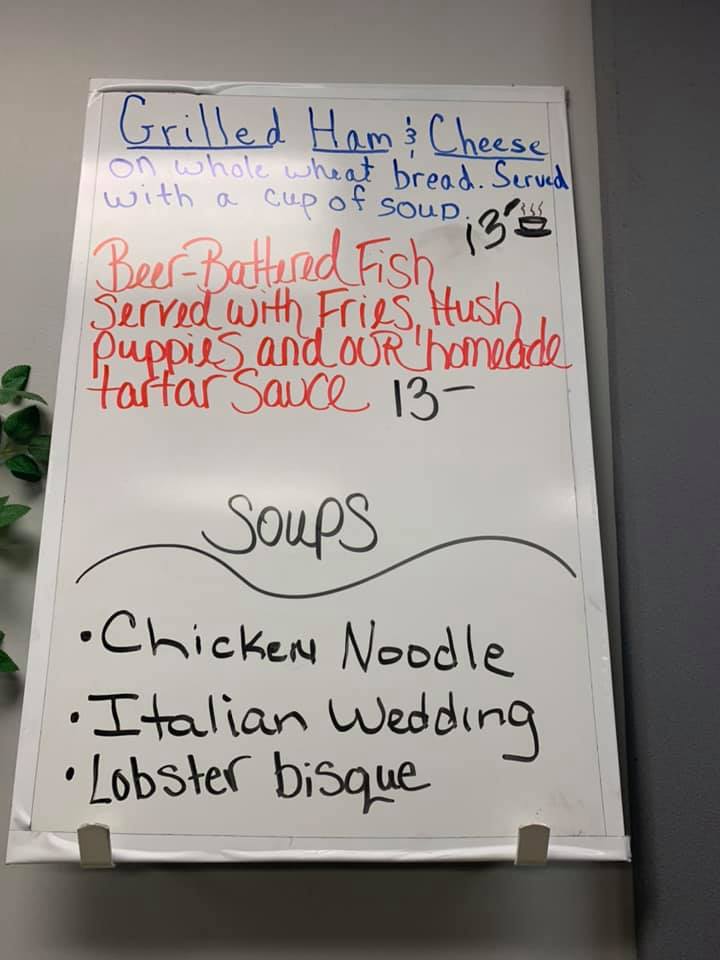 Grilled Ham & Cheese
on whole wheat bread. Served
with a cup of soup. 13-
Beer-Battered Fish
Served with Fries, Hush
puppies and our homeade
tartar Sauce 13-
Soups
• Chicken Noodle
• Italian Wedding
• Lobster bisque